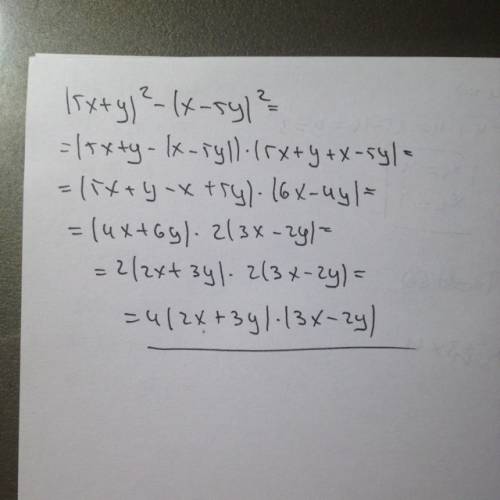 (5x+y)²-(x-5y)²=
=(5x+y-(x-5y))·(5x+y+x-5y)=
=(5x+y-x+5y)·(6x-4y)=
=(4x+6y)·2(3x-2y)=
=2(2x+3y)·2(3x-2y)=
=4(2x+3y)·(3x-2y)